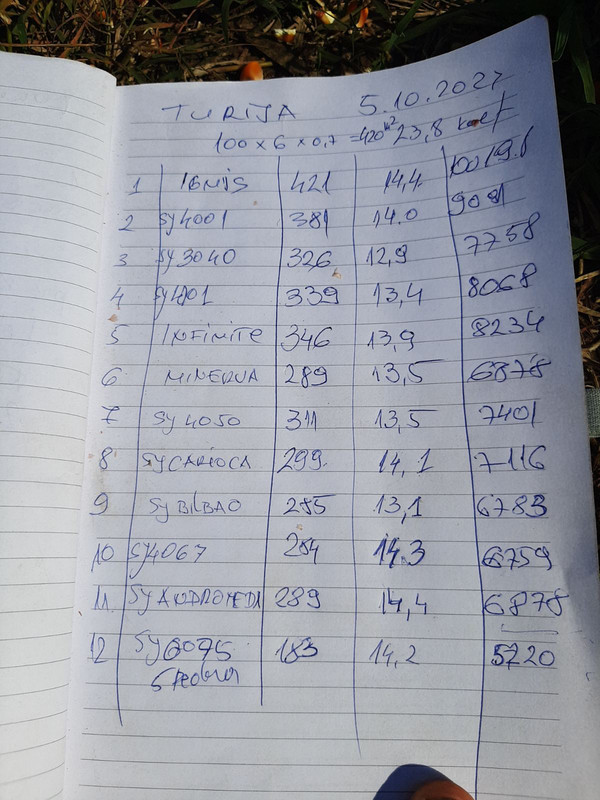 TURIJA 5.10.2027
100 x 6 x 0,7 = 420 m2 23,8 koef
1 IGNIS 421 14,4 10019.8
2 Sy 4001 381 14.0 9091
3 Sy 3040 326 12,9 7758
4 339 13,4 8068
5 INFINITE 346 13,9 8234
6 MINERVA 289 13,5 6878
7 SY 4050 311 13,5 7401
8 SY CARIOCA 299 14,1 7116
9 SY BILBAO 285 13,1 6783
10 SY4067 284 14.3 6759
11 SY ANDROMEDA 289 14,4 6878
12 SY6075 183 14,2 5720
5 redova